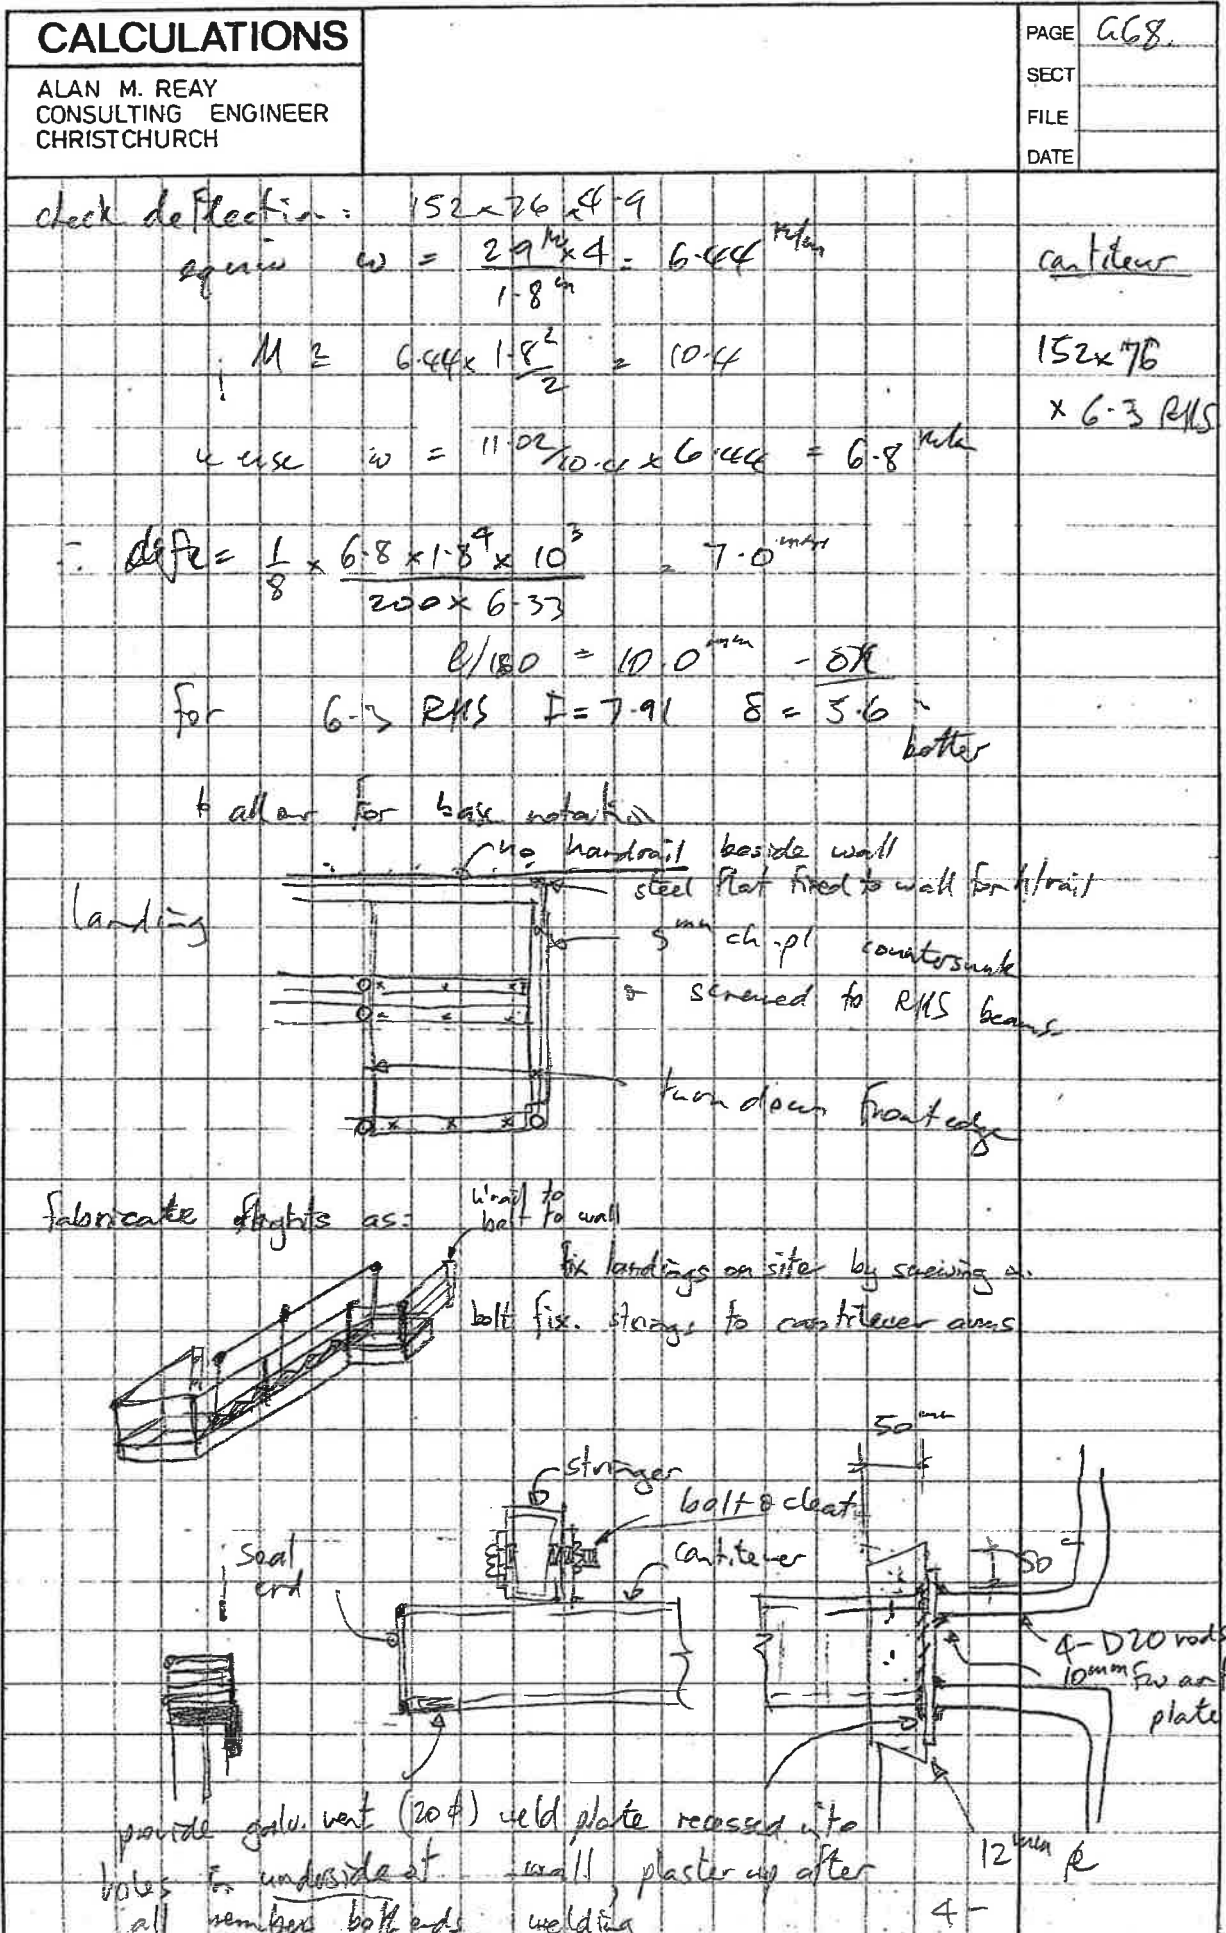 CALCULATIONS
ALAN M. REAY
CONSULTING ENGINEER
CHRISTCHURCH
PAGE G68.
SECT
FILE
DATE
check deflection: 152 x 76 x 4.9
equiv w = 2.9 x 4 / 1.8 = 6.44
cantilever
M = 6.44 x 1.8² / 2 = 10.4
152 x 76
x 6.3 RHS
use w = 11.02/10.4 x 6.44 = 6.8
∴ defl = 1/8 x 6.8 x 1.8⁴ x 10³ / 200 x 6.33 = 7.0 mm
l/180 = 10.0 mm - OK
for 6.3 RHS I = 7.91 δ = 5.6
better
to allow for base rotation
no handrail beside wall
steel flat fixed to wall for h/rail
landing
5mm ch.pl countersunk
screwed to RHS beams
turn down front edge
fabricate flights as:
h'rail to
bolt to wall
fix landings on site by screwing
bolt fix. strings to cantilever arms
50 mm
stringer
bolt & cleat
cantilever
seal
end
50
4-D20 rods
10mm FW
plate
provide galv. vent (20φ)
holes in underside at
all members both ends
weld plate recessed into
wall, plaster up after
welding
12mm PL
4-